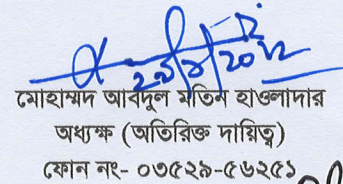 ২৯/৯/২০২২
মোহাম্মদ আবদুল মতিন হাওলাদার
অধ্যক্ষ (অতিরিক্ত দায়িত্ব)
ফোন নং- ০৩৫২৯-৫৬২৫১